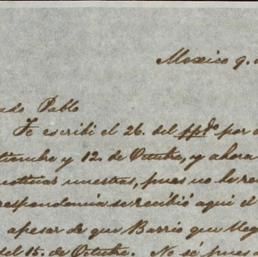 Mexico 9.
ado Pablo
Te escribi el 26. del ppdo por
tiembre y 12. de Octubre, y ahora
noticias nuestras, pues no la re
respondencia se recibió aqui el
apesar de que Barrio que lleg
del 15. de Octubre. No sé pues